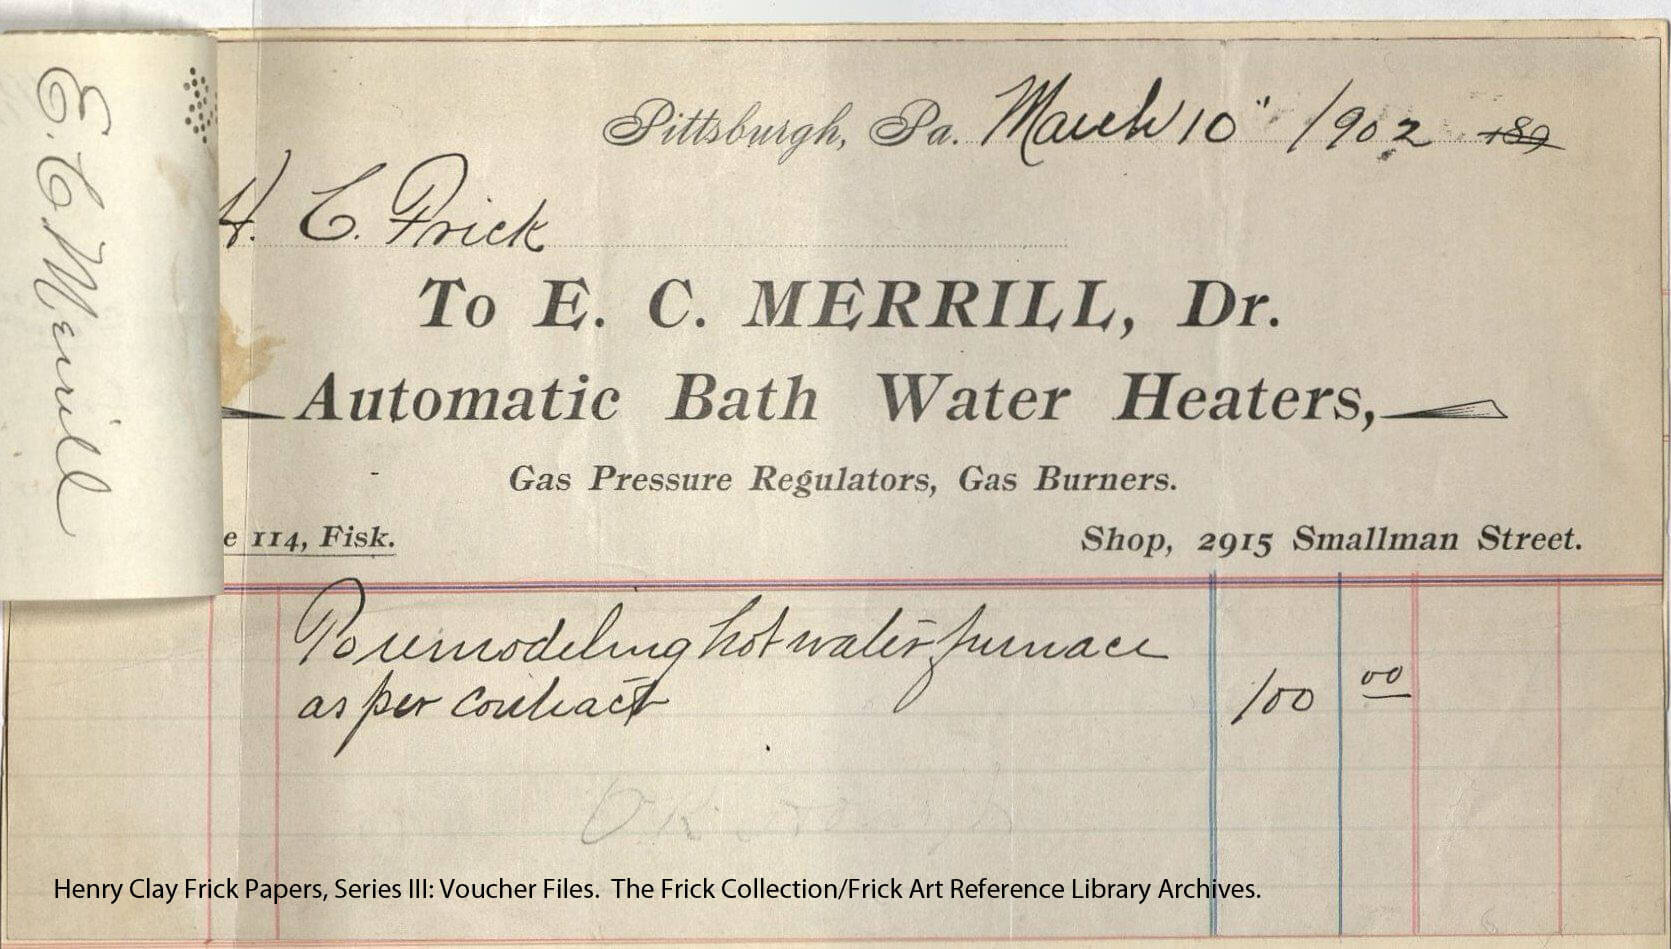 E. C. Merrill
Pittsburgh, Pa. March 10" 1902 189
H. C. Frick
To E. C. MERRILL, Dr.
Automatic Bath Water Heaters,
Gas Pressure Regulators, Gas Burners.
e 114, Fisk.
Shop, 2915 Smallman Street.
To remodeling hot water furnace
as per contract 100 00
OK
Henry Clay Frick Papers, Series III: Voucher Files. The Frick Collection/Frick Art Reference Library Archives.